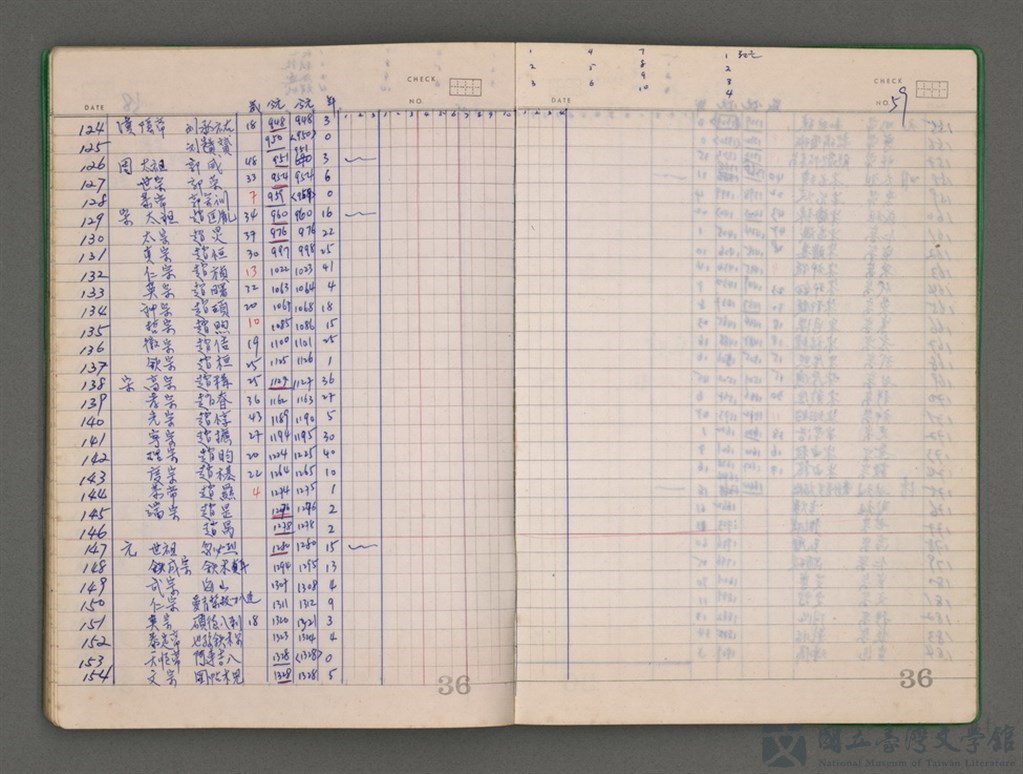 CHECK
DATE NO.
歲 公元 公元 年
124 漢 隱帝 刘承祐 18 948 948 3
125 刘贇 950 <950> 0
126 周 太祖 郭威 48 951 3
127 世宗 郭荣 33 954 954 6
128 恭帝 7 959 <959> 0
129 宋 太祖 趙匡胤 34 960 960 16
130 太宗 趙炅 39 976 976 22
131 真宗 趙恒 30 997 998 25
132 仁宗 趙禎 13 1022 1023 41
133 英宗 趙曙 32 1063 1064 4
134 神宗 趙頊 20 1067 1068 18
135 哲宗 趙煦 10 1085 1086 15
136 徽宗 趙佶 19 1100 1101 25
137 欽宗 趙桓 25 1125 1126 1
138 宋 高宗 趙構 25 1127 1127 36
139 孝宗 趙眘 36 1162 1163 27
140 光宗 趙惇 43 1189 1190 5
141 寧宗 趙擴 27 1194 1195 30
142 理宗 趙昀 20 1224 1225 40
143 度宗 趙禥 22 1264 1265 10
144 恭帝 趙㬎 4 1274 1275 1
145 端宗 趙昰 1276 1276 2
146 趙昺 1278 1278 2
147 元 世祖 忽必烈 1280 1280 15
148 成宗 1294 1295 13
149 武宗 海山 1307 1308 4
150 仁宗 1311 1312 9
151 英宗 碩德八剌 18 1320 1321 3
152 泰定帝 也孫鉄木兒 1323 1324 4
153 天順帝 阿速吉八 1328 <1328> 0
154 文宗 圖帖木兒 1328 1328 5
36
1 4 7 1
2 5 8 2
3 6 9 3
10 4
CHECK
DATE NO. 59
36
國立臺灣文學館
National Museum of Taiwan Literature